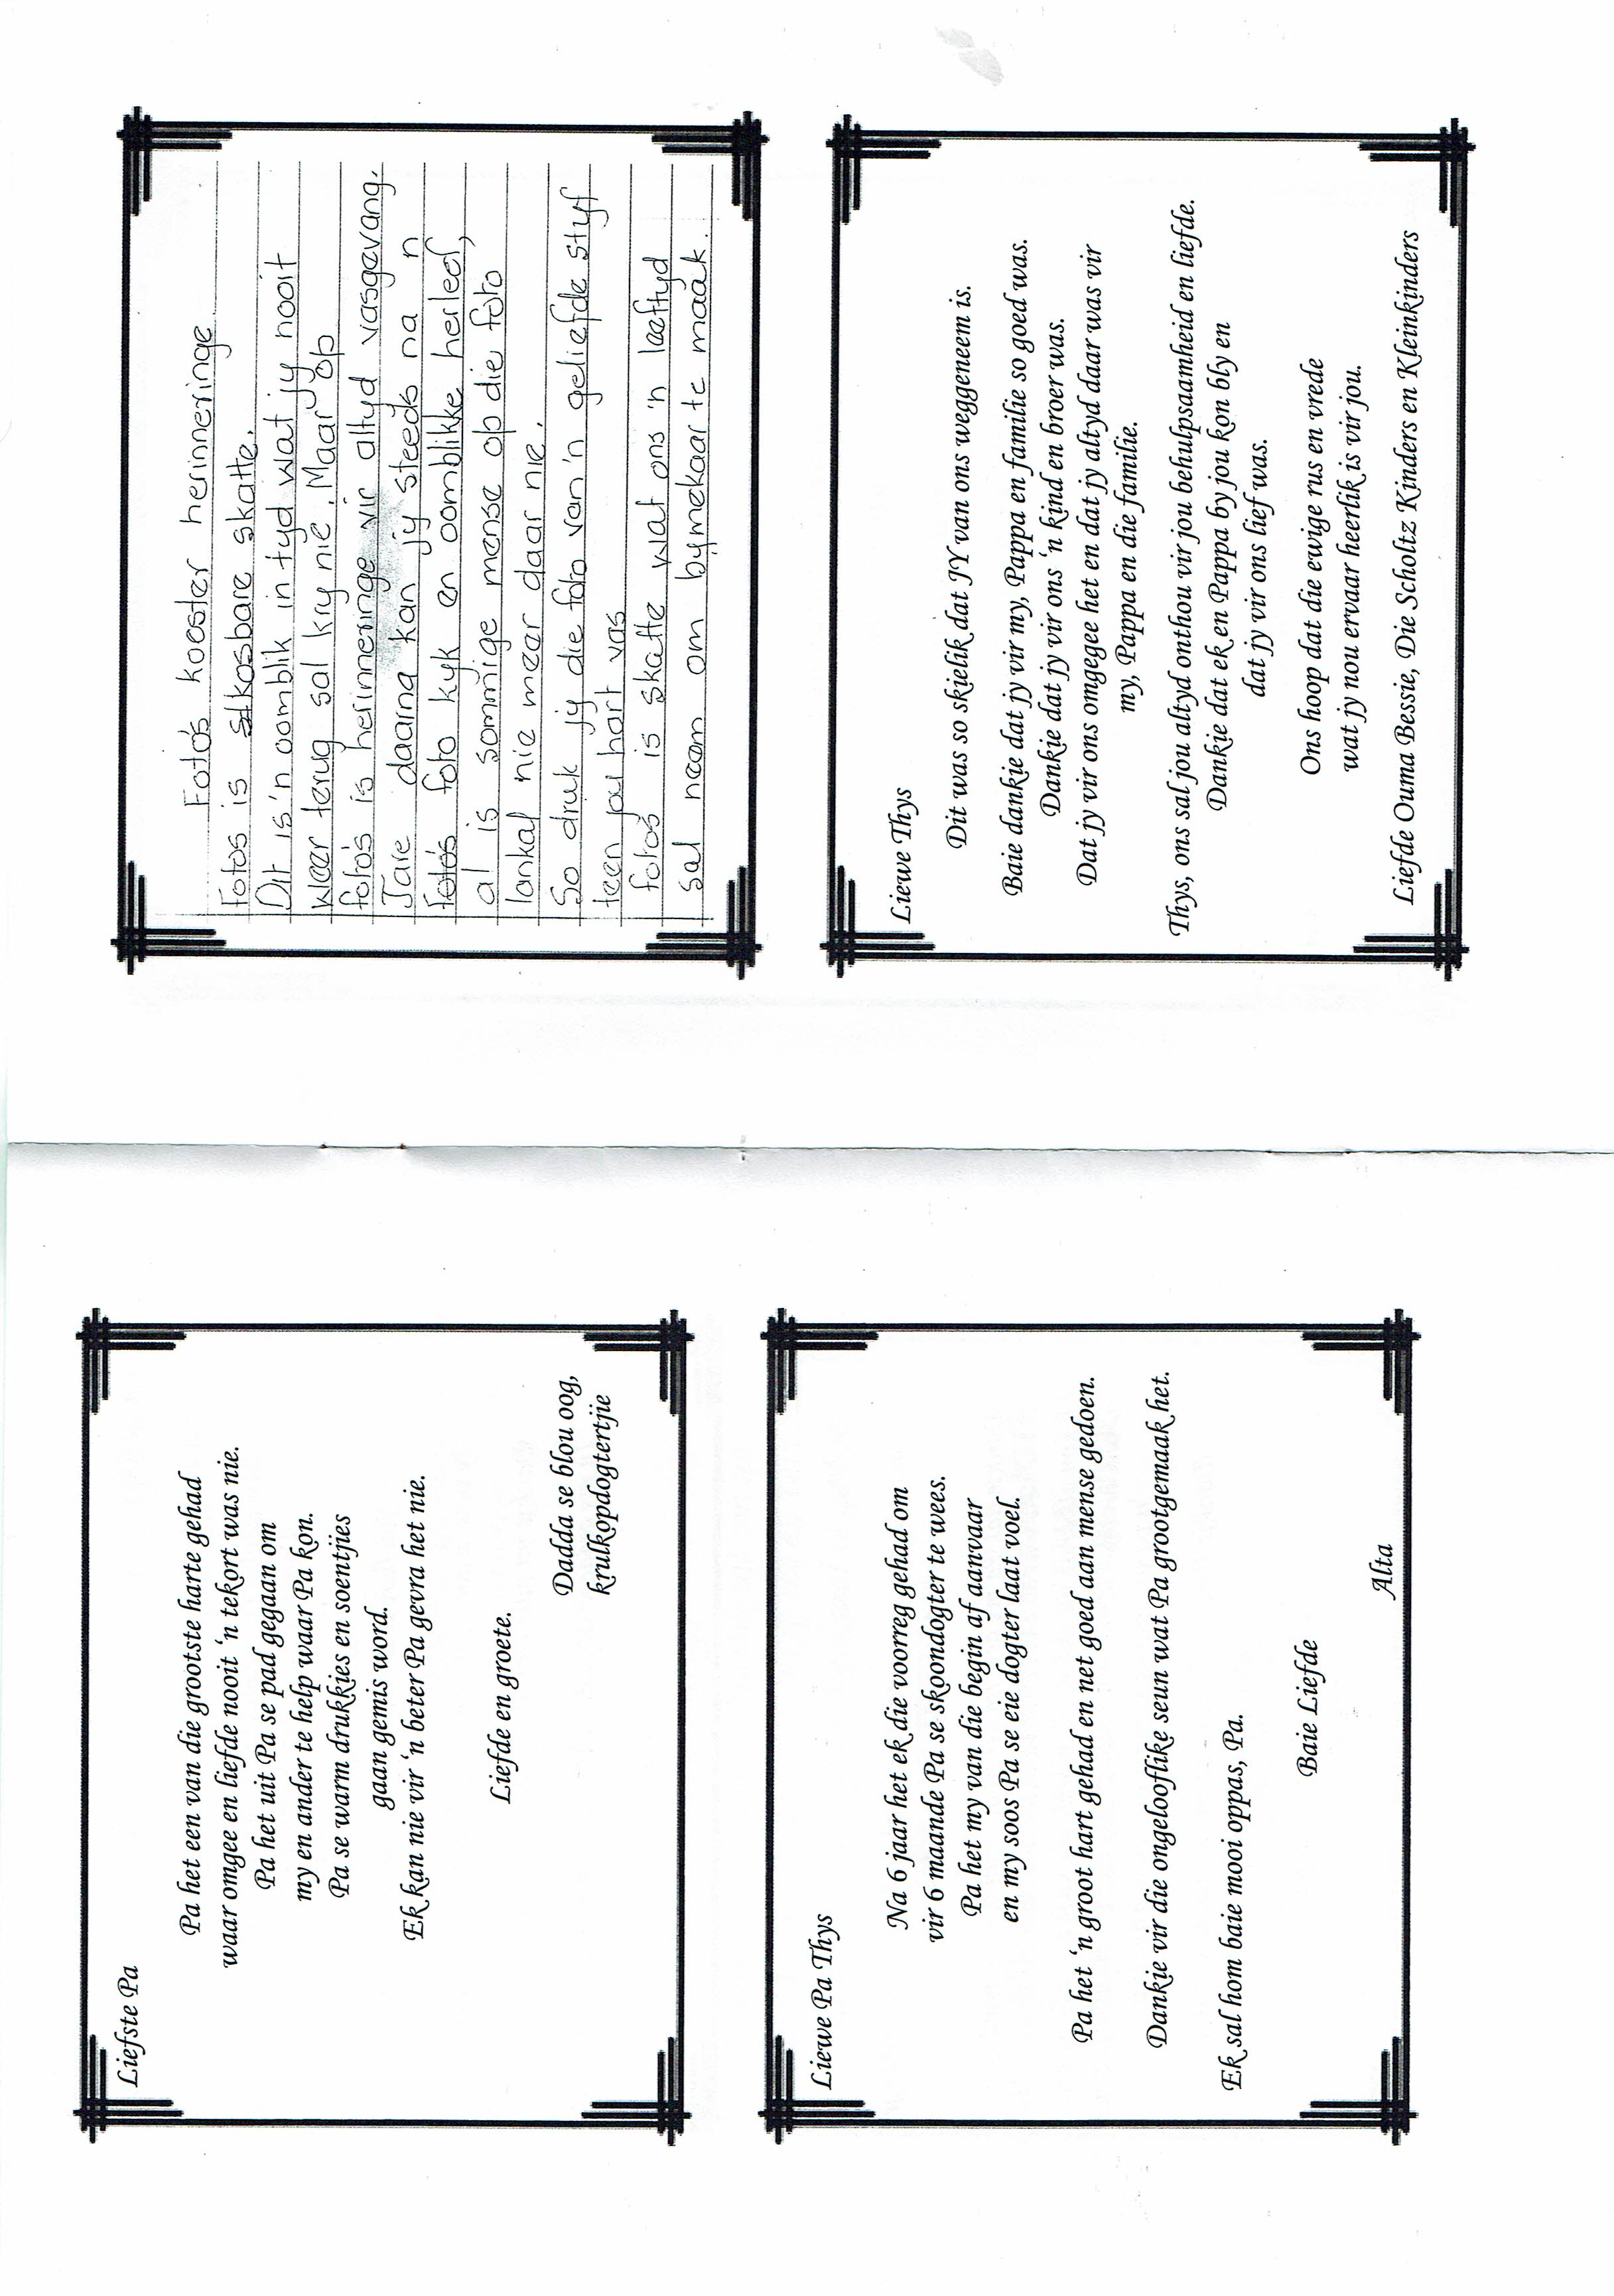 Liefste Pa
Pa het een van die grootste harte gehad
waar omgee en liefde nooit 'n tekort was nie.
Pa het uit Pa se pad gegaan om
my en ander te help waar Pa kon.
Pa se warm drukkies en soentjies
gaan gemis word.
Ek kan nie vir 'n beter Pa gevra het nie.
Liefde en groete.
Dadda se blou oog,
krulkopdogtertjie
Liewe Pa Thys
Na 6 jaar het ek die voorreg gehad om
vir 6 maande Pa se skoondogter te wees.
Pa het my van die begin af aanvaar
en my soos Pa se eie dogter laat voel.
Pa het 'n groot hart gehad en net goed aan mense gedoen.
Dankie vir die ongelooflike seun wat Pa grootgemaak het.
Ek sal hom baie mooi oppas, Pa.
Baie Liefde
Alta
Foto's koester herinneringe
Fotos is kosbare skatte.
Dit is 'n oomblik in tyd wat jy nooit
weer terug sal kry nie. Maar op
foto's is herinneringe vir altyd vasgevang.
Jare daarna kan jy steeds na n
foto's foto kyk en oomblikke herleef,
al is sommige mense op die foto
lankal nie meer daar nie.
So druk jy die foto van 'n geliefde styf
teen jou hart vas
foto's is skatte wat ons 'n leeftyd
sal neem om bymekaar te maak.
Liewe Thys
Dit was so skielik dat JY van ons weggeneem is.
Baie dankie dat jy vir my, Pappa en familie so goed was.
Dankie dat jy vir ons 'n kind en broer was.
Dat jy vir ons omgegee het en dat jy altyd daar was vir
my, Pappa en die familie.
Thys, ons sal jou altyd onthou vir jou behulpsaamheid en liefde.
Dankie dat ek en Pappa by jou kon bly en
dat jy vir ons lief was.
Ons hoop dat die ewige rus en vrede
wat jy nou ervaar heerlik is vir jou.
Liefde Ouma Bessie, Die Scholtz Kinders en Kleinkinders